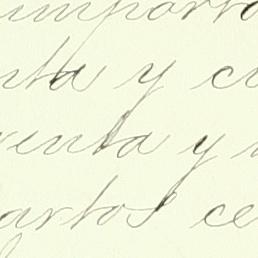 importa
nta y ci
venta y
artos ce